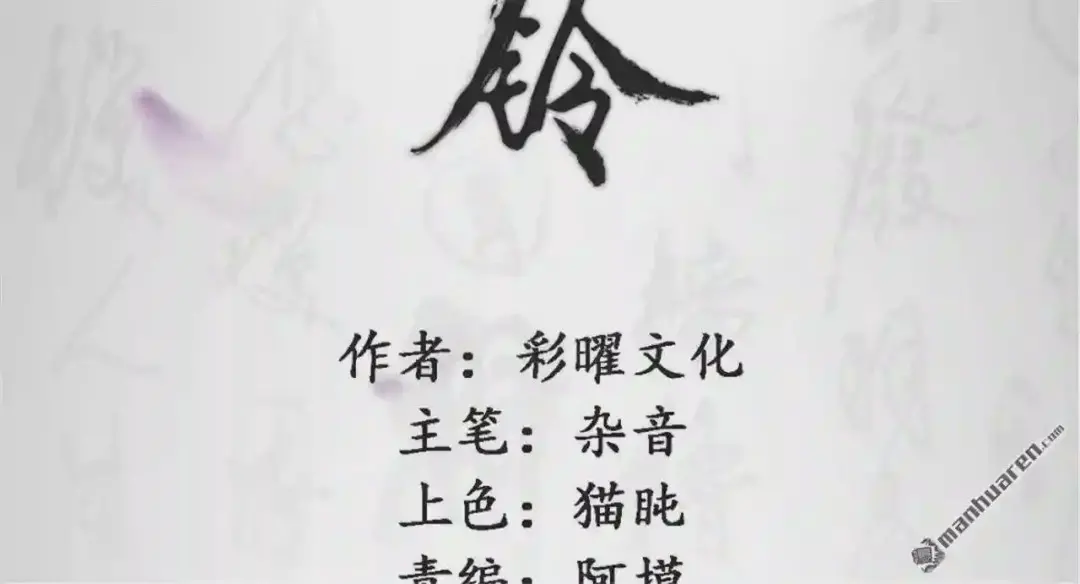 铃
作者：彩曜文化
主笔：杂音
上色：猫盹
责编：阿摸
manhuaren.com